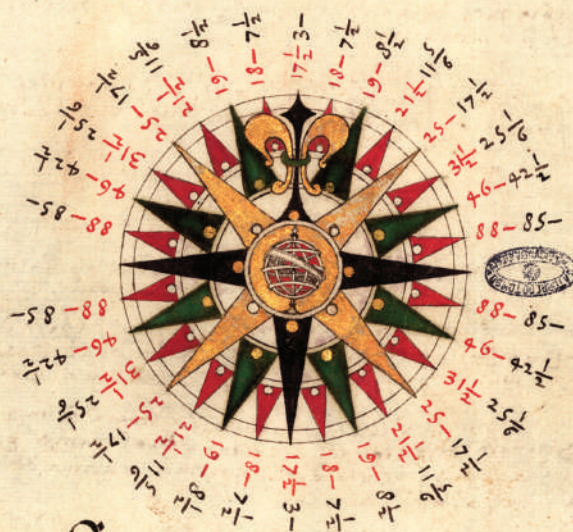 17 1/2 3-
18- 7 1/2
19- 8 1/2
21 1/2 11 5/6
25- 17 1/2
31 1/2 25 1/6
46- 42 1/2
88- 85-
88- 85-
46- 42 1/2
31 1/2 25 1/6
25- 17 1/2
21 1/2 11 5/6
19- 8 1/2
18- 7 1/2
17 1/2 3-
18- 7 1/2
19- 8 1/2
21 1/2 11 5/6
25- 17 1/2
31 1/2 25 1/6
46- 42 1/2
88- 85-
88- 85-
46- 42 1/2
31 1/2 25 1/6
25- 17 1/2
21 1/2 11 5/6
19- 8 1/2
18- 7 1/2